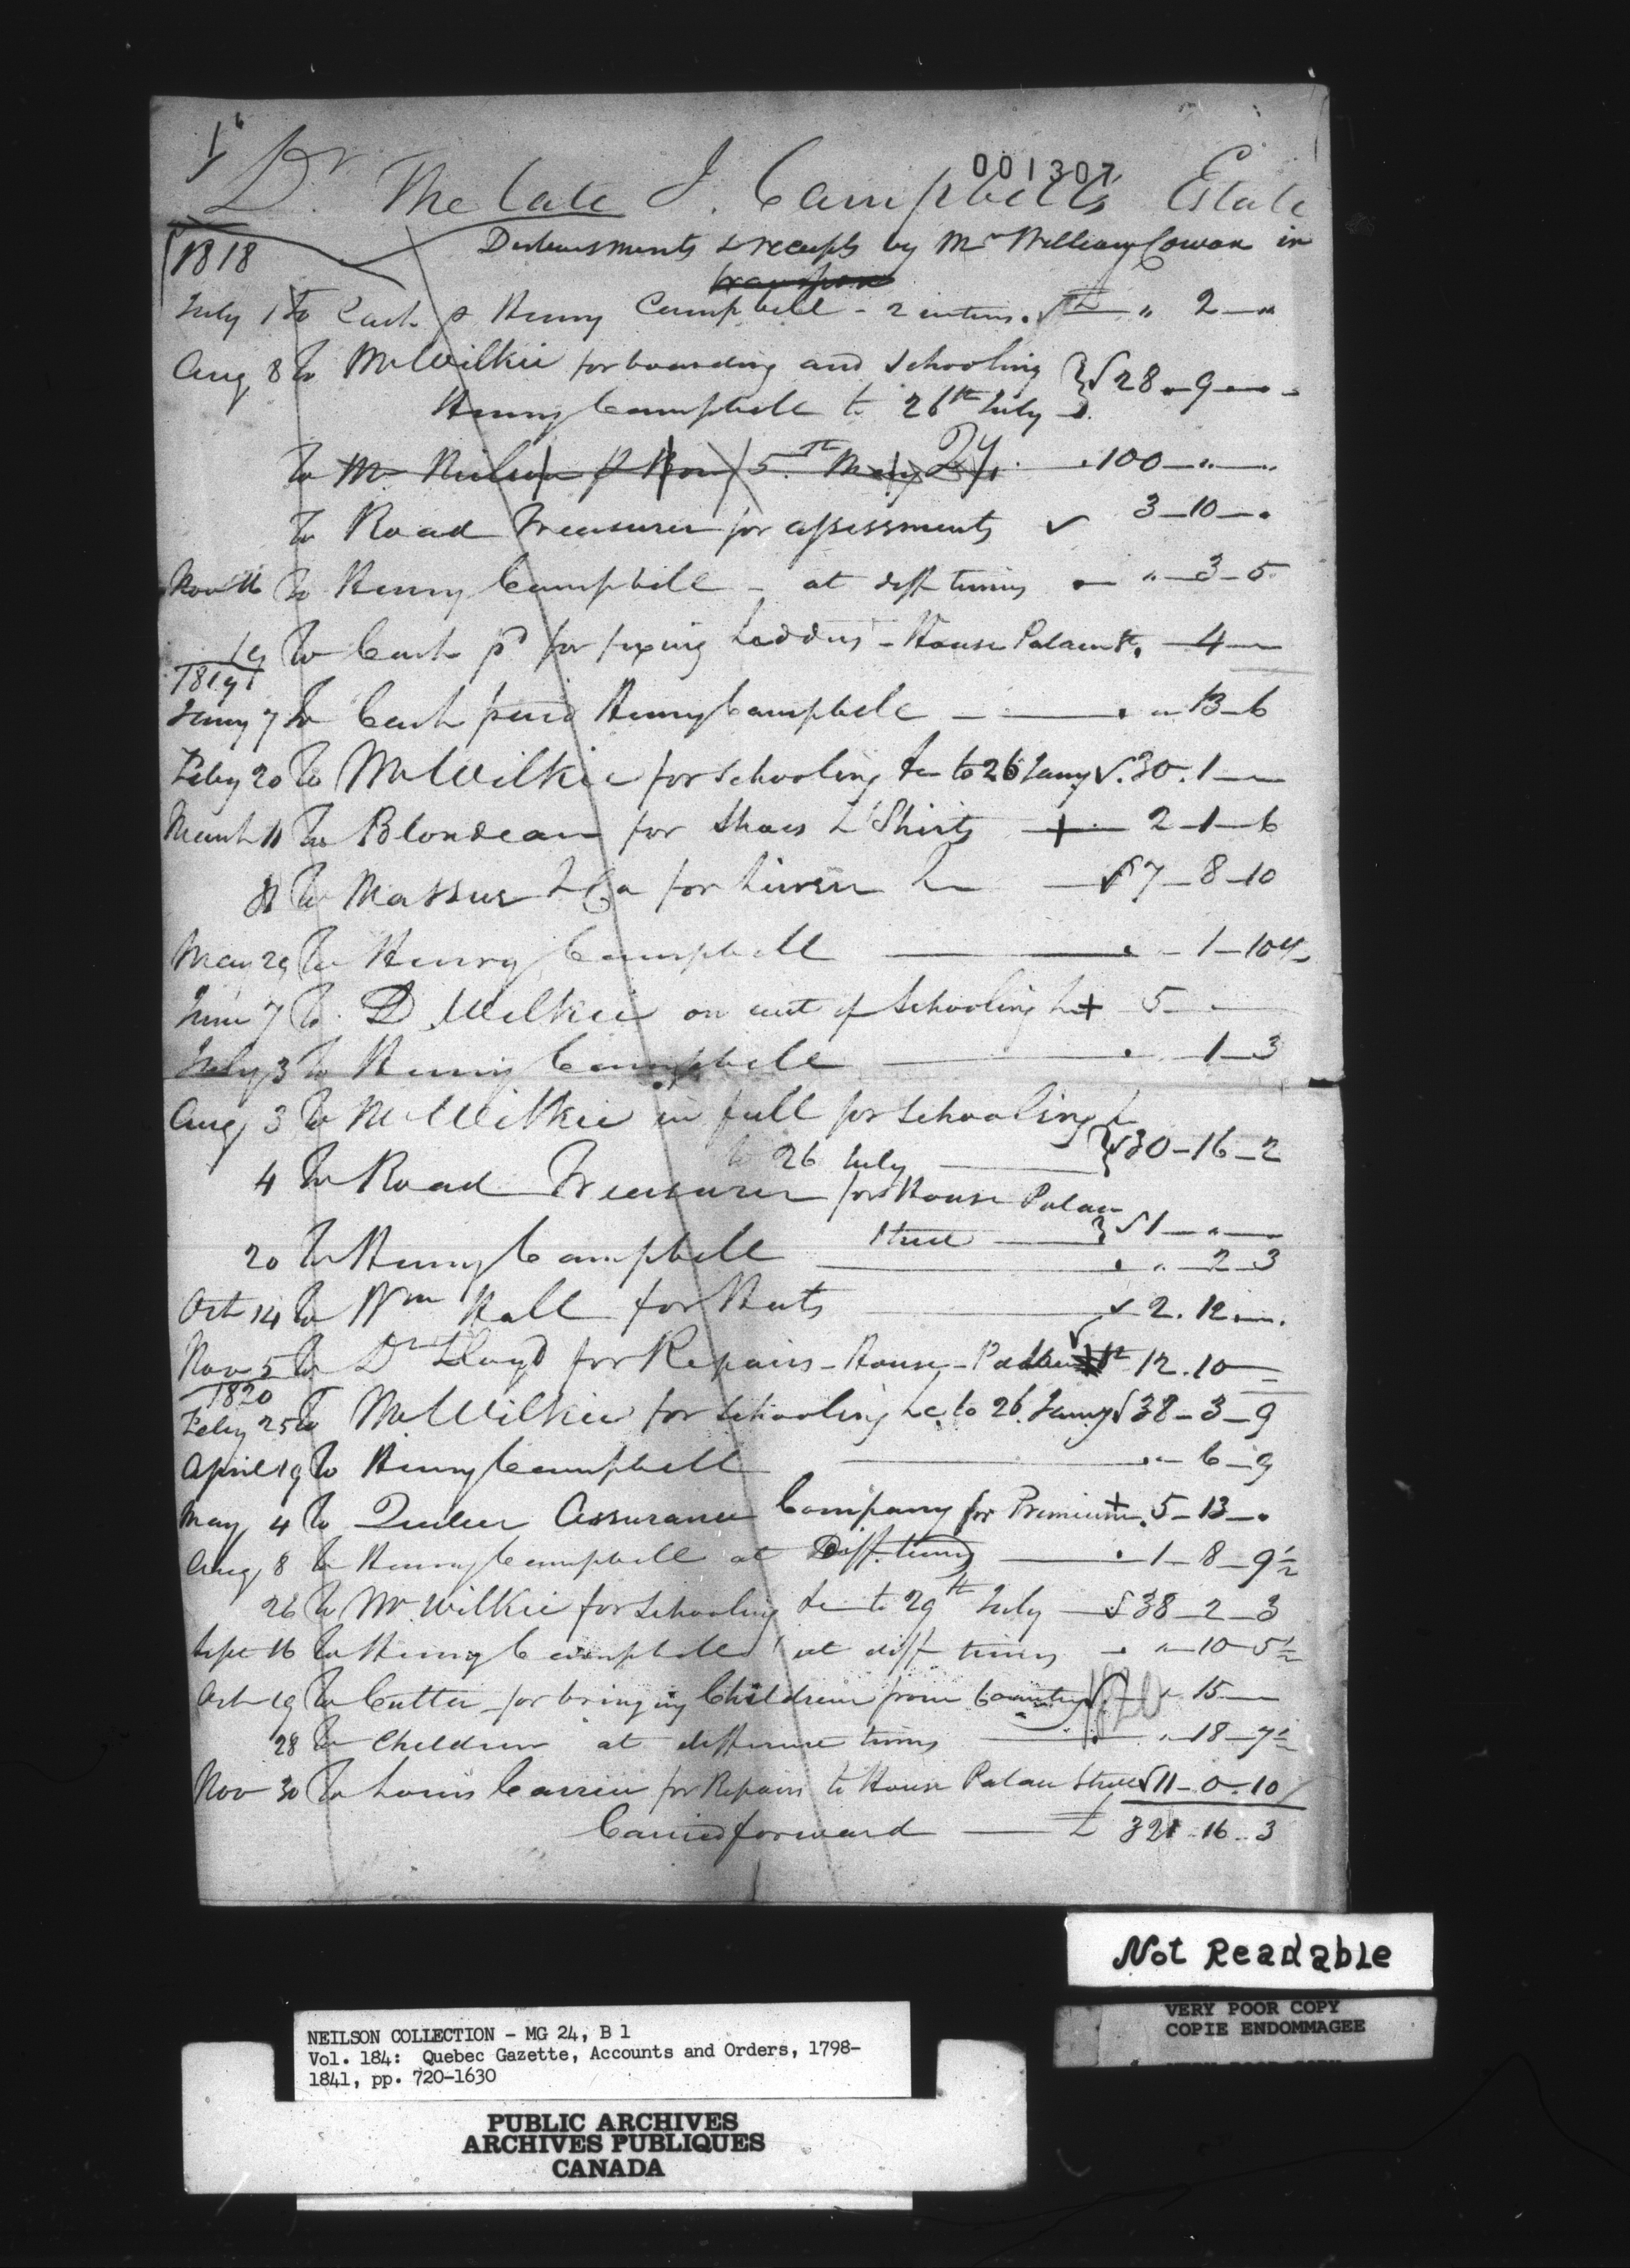 1
001307
Dr The late J. Campbell's Estate
1818 Disbursments & receipts by Mr William Cowan in
July 1 To Cash p Henry Campbell - 2 " 2 — "
Aug 8 To Mr Wilkie for boarding and schooling
Henry Campbell to 26th July } √ 28 - 9 —
To Mr Neilson 5th May 100 — " —
To Road Treasurer for assessments √ 3 - 10 —
Nov 16 To Henry Campbell - at diff times " - 3 - 5
To Cash pd for fixing Ladders - House Palace St. - 4 —
1819
Jany 7 To Cash paid Henry Campbell — " 13 - 6
Feby 20 To Mr Wilkie for schooling &c to 26 Jany √ 30 . 1 —
March 11 To Blondeau for Shoes & Shirts + 2 - 1 - 6
To Massue & Co for Linen &c √ 7 - 8 - 10
May 29 To Henry Campbell — " 1 - 10 1/2
June 7 To D Wilkie on acct of Schooling &c + 5 —
July 3 To Henry Campbell — 1 - 3
Aug 3 To Mr Wilkie in full for schooling &c
to 26 July — } √ 30 - 16 - 2
4 To Road Treasurer for House Palace
Street — } √ 1 - " —
20 To Henry Campbell — " - 2 - 3
Oct 14 To Wm Hall for Hats — √ 2 . 12 —
Nov 5 To Dr Lloyd for Repairs - House - Palace St √ 12 . 10 —
1820
Feby 25 To Mr Wilkie for schooling &c to 26 Jany √ 38 - 3 - 9
April 19 To Henry Campbell — " - 6 - 9
May 4 To Quebec Assurance Company for Premium + 5 - 13 —
Aug 8 To Henry Campbell at Diff. times — 1 - 8 - 9 1/2
26 To Mr Wilkie for schooling &c to 29th July — √ 38 - 2 - 3
Sept 16 To Henry Campbell at diff times " - 10 - 5 1/2
Oct 19 To Cutter for bringing Children from Country √ " 15 —
28 To Children at different times — " - 18 - 7 1/2
Nov 30 To Louis Carrier for Repairs to House Palace Street √ 11 - 0 - 10
Carried forward — £ 321 - 16 - 3
Not Readable
VERY POOR COPY
COPIE ENDOMMAGEE
NEILSON COLLECTION - MG 24, B 1
Vol. 184: Quebec Gazette, Accounts and Orders, 1798-
1841, pp. 720-1630
PUBLIC ARCHIVES
ARCHIVES PUBLIQUES
CANADA